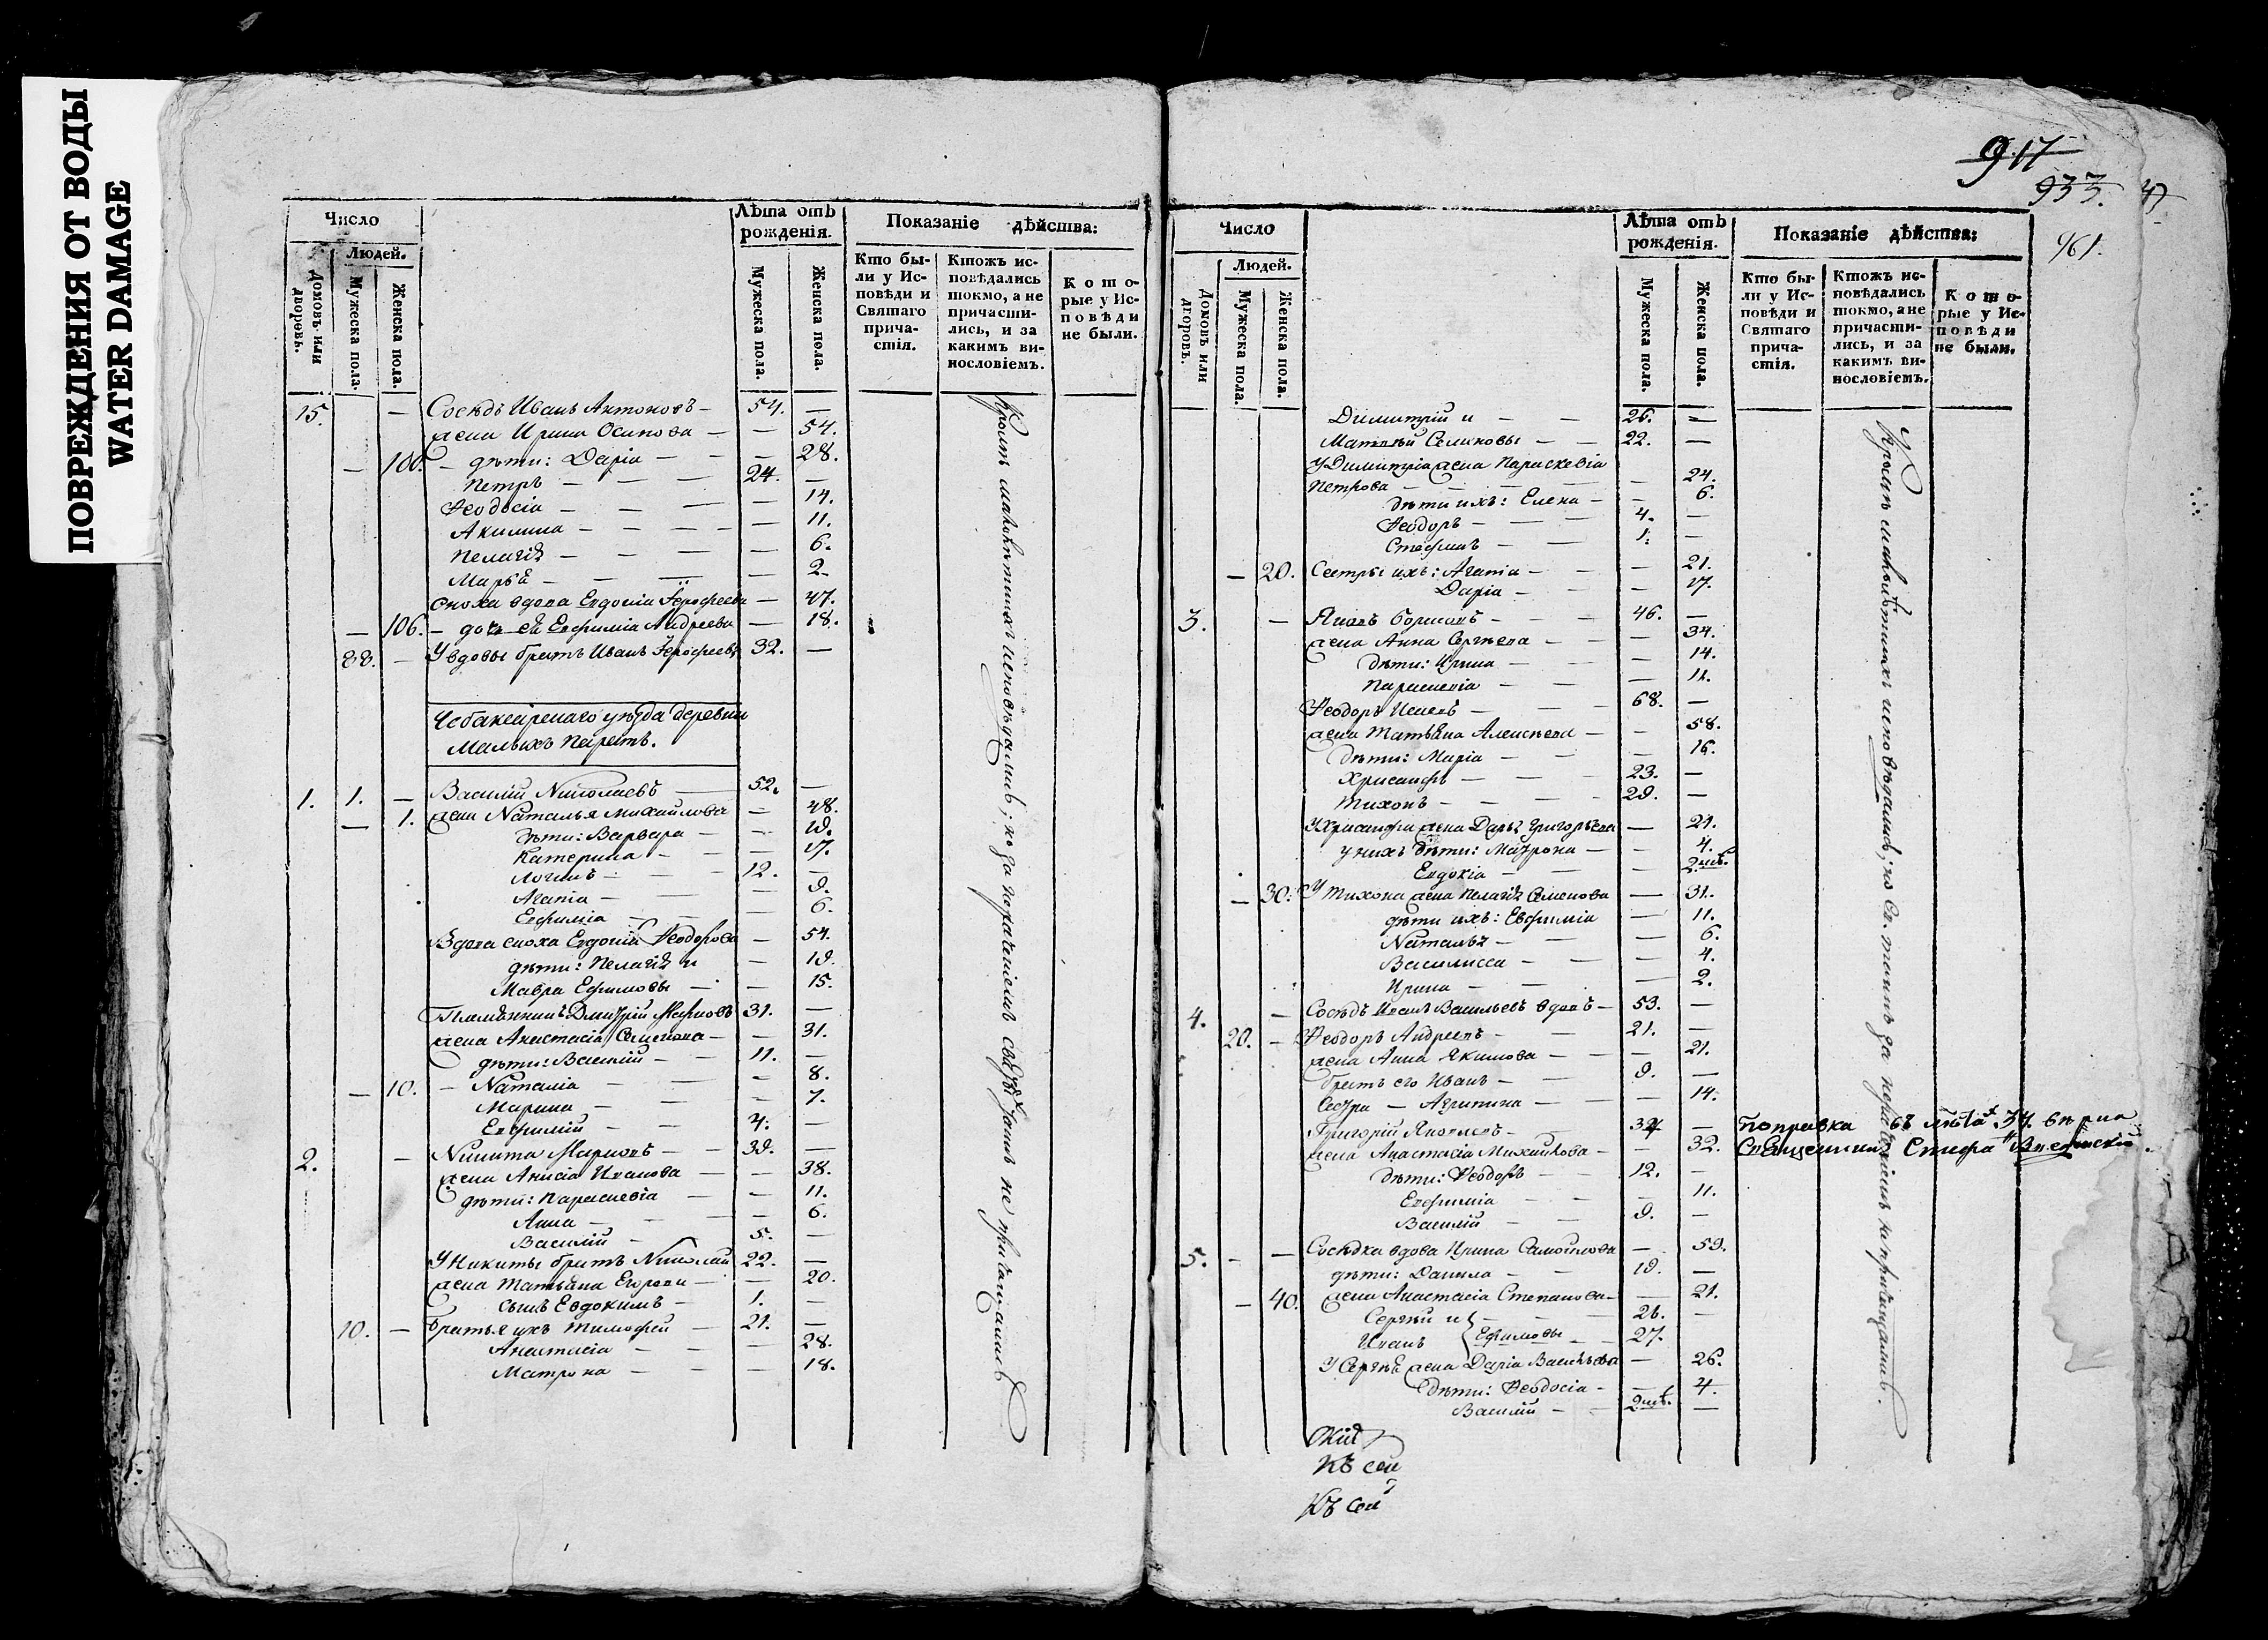 ПОВРЕЖДЕНИЯ ОТ ВОДЫ
WATER DAMAGE
Число
Людей.
Домовъ или дворовъ.
Мужеска пола.
Женска пола.
Лѣта отъ рожденія.
Мужеска пола.
Женска пола.
Показаніе дѣйства:
Кто бы-
ли у Ис-
повѣди и
Святаго
прича-
стія.
Ктожъ ис-
повѣдались
токмо, а не
причасти-
лись, и за
какимъ ви-
нословіемъ.
Кото-
рые у Ис-
повѣди
не были.
15. — Сосѣдъ Иванъ Антоновъ — 54. —
жена Ирина Осипова — — 54.
— 100. — дѣти: Дарія — — — 28.
Петръ — — — 24. —
Феодосія — — — — 14.
Акилина — — — — 11.
Пелагія — — — — 6.
Марья — — — — 2.
Сноха вдова Евдокія Ерофеева — 47.
— 106. — дочь ея Евфимія Андреева — 18.
88. — У вдовы братъ Иванъ Ерофеевъ 32. —
Чебаксарскаго уѣзда деревни
Малыхъ Паратъ.
1. 1. — Василий Николаевъ — 52. —
— 1. жена Наталья Михайлова — 48.
дѣти: Варвара — — 19.
Катерина — — — 17.
Логинъ — — 12. —
Агапіа — — — 9.
Евфимія — — — 6.
Вдова сноха Евдокія Феодорова — 54.
дѣти: Пелагія и — 19.
Мавра Ефимовы — — 15.
Племянникъ Дмитрій Марковъ 31. —
жена Анастасіа Семенова — — 31.
дѣти: Василій — — 11. —
— 10. — Наталіа — — — 8.
Марина — — — 7.
Евфимій — — 4. —
2. — Никита Марковъ — — 39. —
жена Анисіа Иванова — — 38.
дѣти: Параскевіа — — 11.
Анна — — — 6.
Василій — 5. —
У Никиты братъ Николай 22. —
жена Татьяна Егорова — — 20.
сынъ Евдокимъ — 1. —
10. — Братья ихъ Тимофей — 21. —
Анастасіа — — — 28.
Матрона — — — 18.
Кромѣ малолѣтныхъ исповѣдались; но за нераченіемъ святыхъ Таинъ не причащались
917
933.
47
961.
Число
Людей.
Домовъ или дворовъ.
Мужеска пола.
Женска пола.
Лѣта отъ рожденія.
Мужеска пола.
Женска пола.
Показаніе дѣйства:
Кто бы-
ли у Ис-
повѣди и
Святаго
прича-
стія.
Ктожъ ис-
повѣдались
токмо, а не
причасти-
лись, и за
какимъ ви-
нословіемъ.
Кото-
рые у Ис-
повѣди
не были.
Димитрій и — — 26. —
Матвѣй Семеновы — — 22. —
У Димитріа жена Параскевіа
Петрова — — — — — 24.
дѣти ихъ: Елена — — 6.
Феодоръ — — — 4. —
Стефанъ — — 1. —
— 20. Сестры ихъ: Агапіа — — — 21.
Даріа — — — 17.
3. — Яковъ Борисовъ — — 46. —
жена Анна Сергѣева — — — 34.
дѣти: Ирина — — — 14.
Параскевіа — — — 11.
Феодоръ Исаевъ — — — 68. —
жена Татьяна Алексѣева — — 58.
дѣти: Маріа — — — 16.
Хрисанфъ — — — 23. —
Тихонъ — — — — 29. —
У Хрисанфа жена Дарья Григорьева — 21.
у нихъ дѣти: Матрона — — 4.
Евдокіа — — — 2 мѣ.
— 30. У Тихона жена Пелагія Семенова — 31.
дѣти ихъ: Евфиміа — 11.
Наталья — — — 6.
Василисса — — — 4.
Ирина — — — 2.
4. — Сосѣдъ Иванъ Васильевъ вдовъ — 53. —
20. — Феодоръ Андреевъ — — 21. —
жена Анна Якимова — — — 21.
братъ его Иванъ — — 9. —
Сестра — Агрипина — — — 14.
Григорій Яковлевъ — 34 — Поправка въ лѣта. 34. вѣрна
жена Анастасіа Михайлова — — 32. Священникъ
дѣти: Феодоръ — — 12. —
Евфиміа — — — 11.
Василій — — 9. —
5. — — Сосѣдка вдова Ирина Самойлова — 59.
дѣти: Данила — — 19. —
— 40. жена Анастасіа Степанова — — 21.
Сергѣй и — — 26. —
Иванъ Ефимовы — — 27. —
У Сергѣя жена Даріа Васильева — 26.
дѣти: Феодосіа — — 4.
Василій — — 2 мѣ. —
Кромѣ малолѣтныхъ исповѣдались; но св. таинъ за нераченіемъ не причащались.
Къ сей
Къ сей